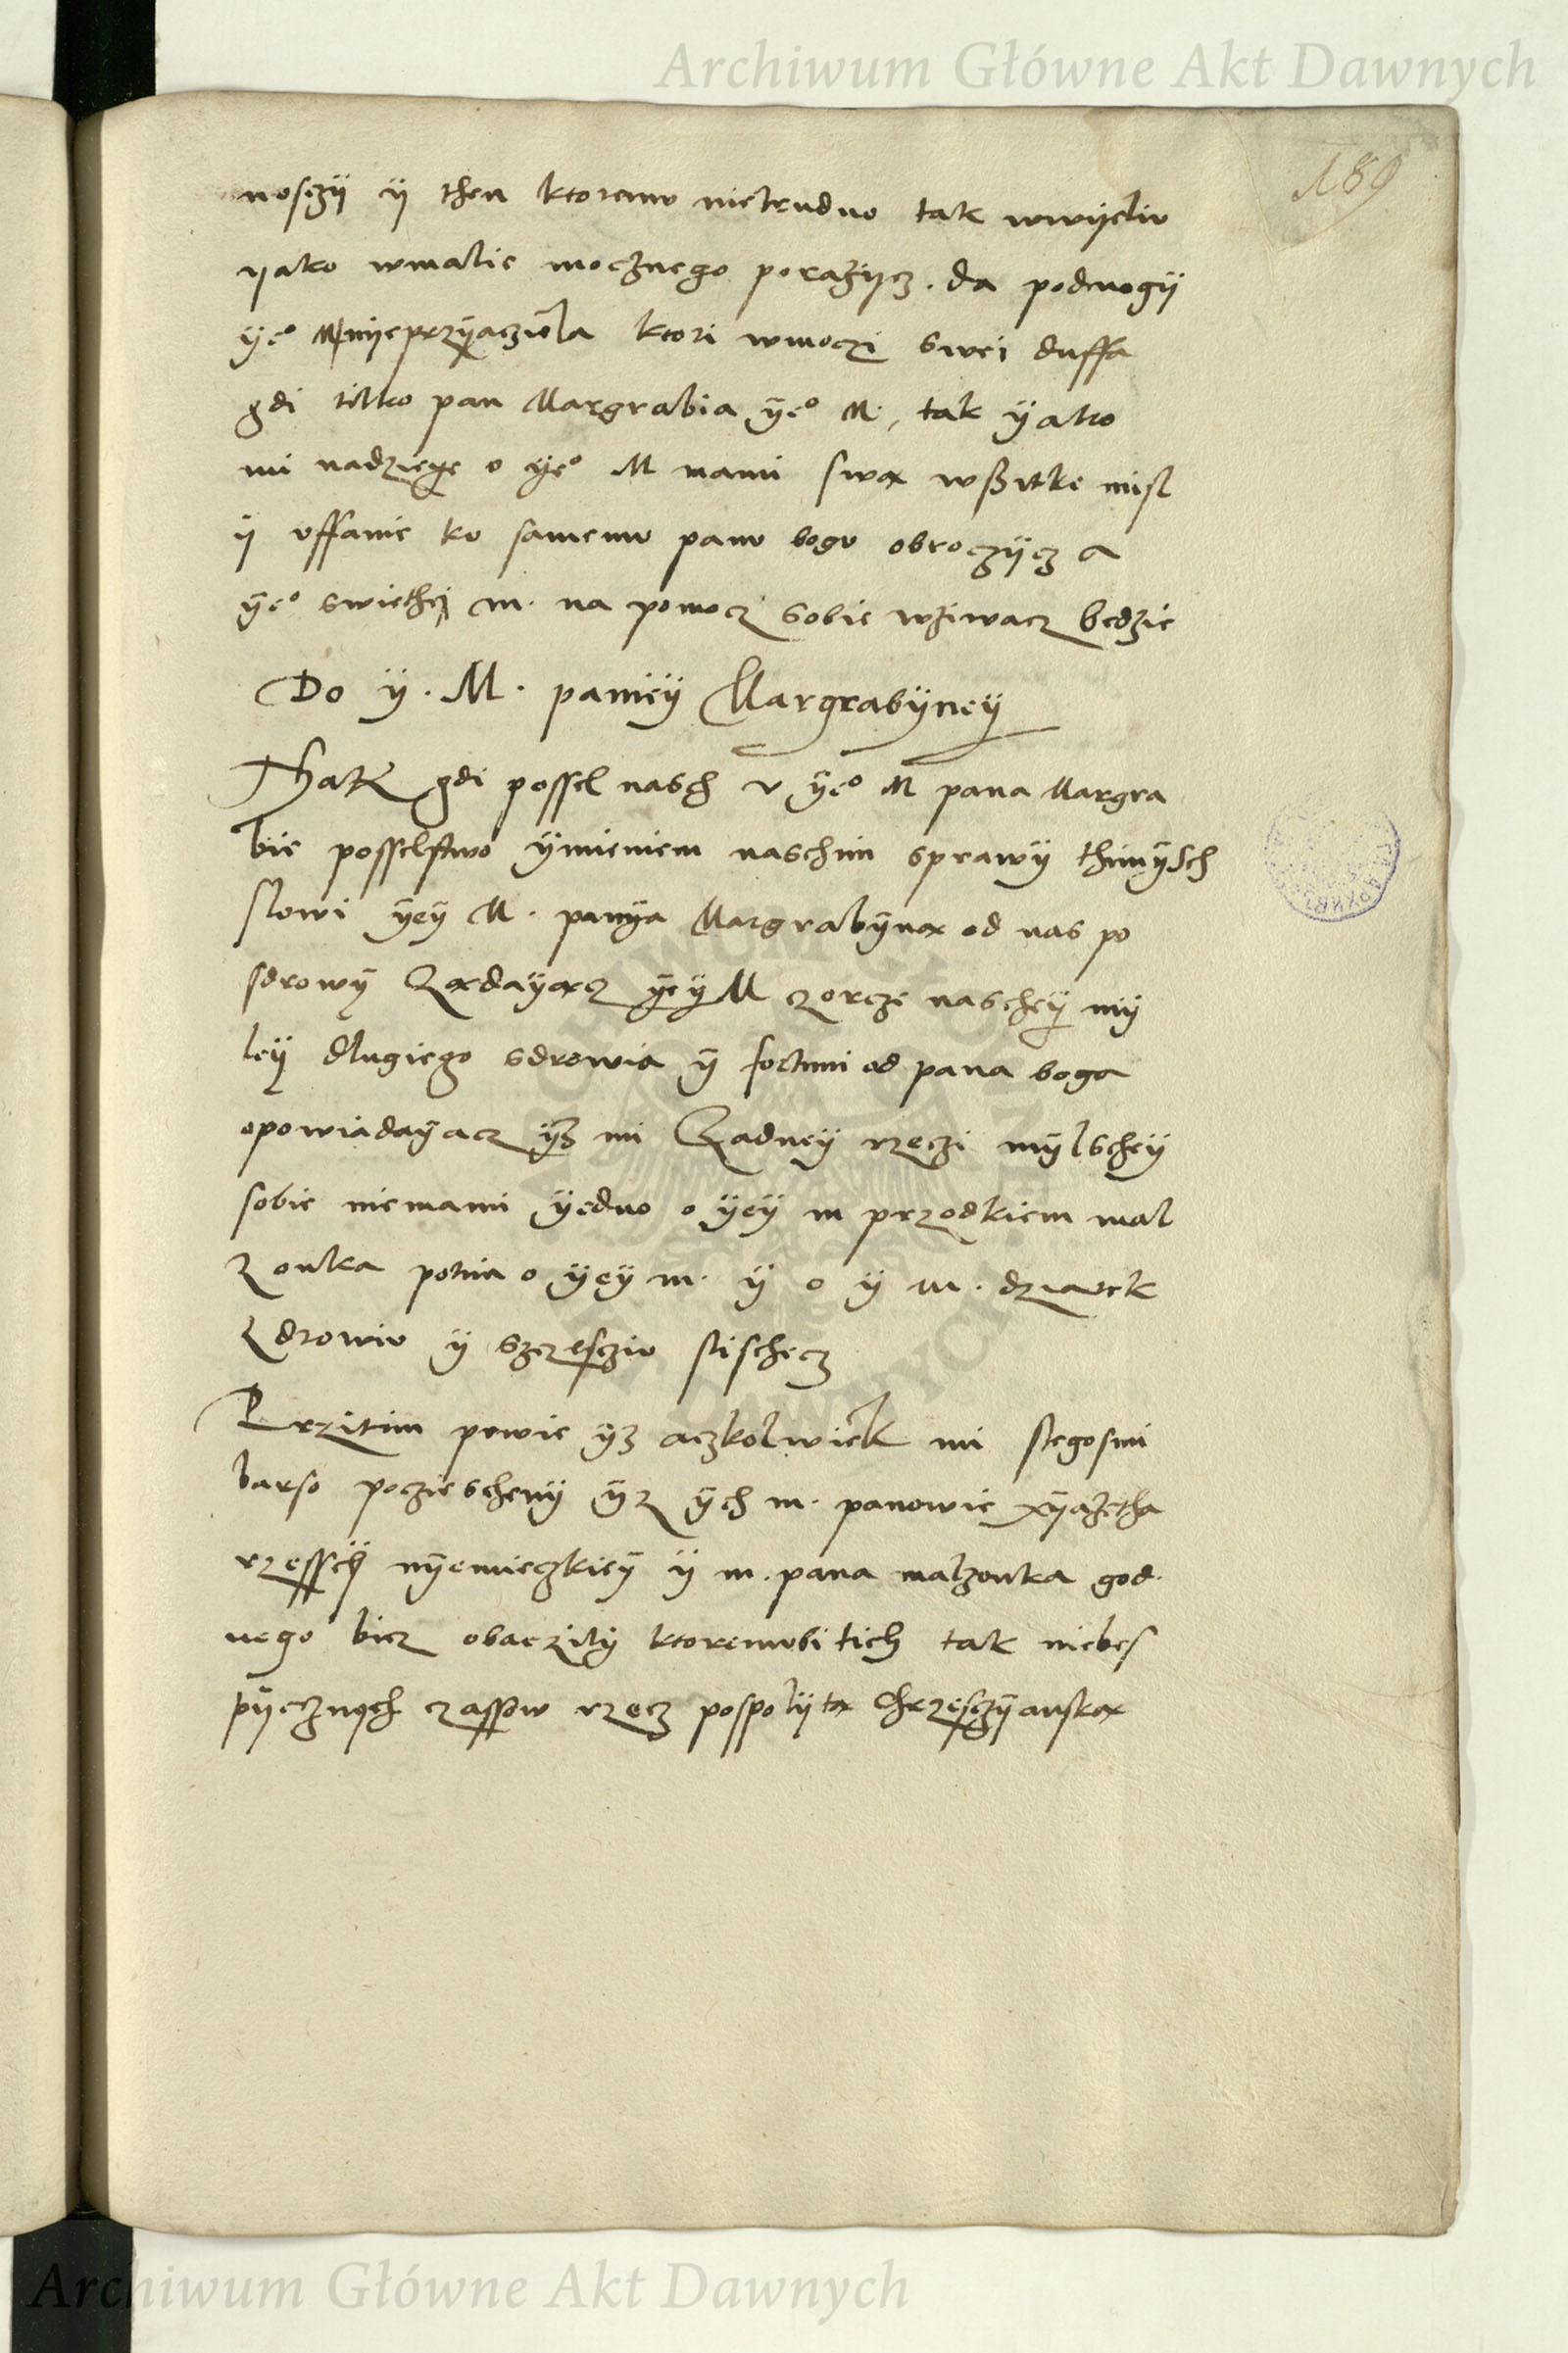 Archiwum Główne Akt Dawnych
189
nosczÿ ÿ then ktoremu nietrudno tak wwÿeliu
yako wmalie mocznego porazÿcz. da podnogÿ
ÿe° nÿeprzÿacziela ktori wmoczi swei duffa
gdi tilko pan Margrabia ÿe° M., tak ÿako
mi nadzieye o ÿe° M mami swa wszitke misl
ÿ uffanie ku samemu panu bogu obroczÿcz a
ÿe° swiethei m. na pomocz sobie wziwacz bedzie
Do ÿ. M. paniey Margrabÿney
Thak gdi possel nasch v ÿe° M pana Margra
bie posselstwo ÿmieniem naschim sprawÿ thimÿsch
slowi ÿeÿ M. panÿa Margrabÿna od nas po
sdrowÿ Zadaÿacz ÿeÿ M czorcze nascheÿ mÿ
leÿ dlugiego sdrowia ÿ fortuni od pana boga
opowiadaÿacz ÿz mi Zadneÿ rzeczi mÿlscheÿ
sobie niemami ÿedno o ÿeÿ m przodkiem mal
zonka potim o ÿeÿ m. ÿ o ÿ m. dziatek
Zdrowiu ÿ szczesciu slischecz
Przitim powie ÿz aczkolwiek mi stegosmi
barso poczieschenÿ ÿz ÿch m. panowie xÿazetha
rzesscheÿ nÿemieczkieÿ ÿ m. pana malzonka god
nego bicz obaczilÿ ktoremubi tich tak niebes
pÿecznÿch czassow rzecz pospolÿta chrzesczÿanska
Archiwum Główne Akt Dawnych